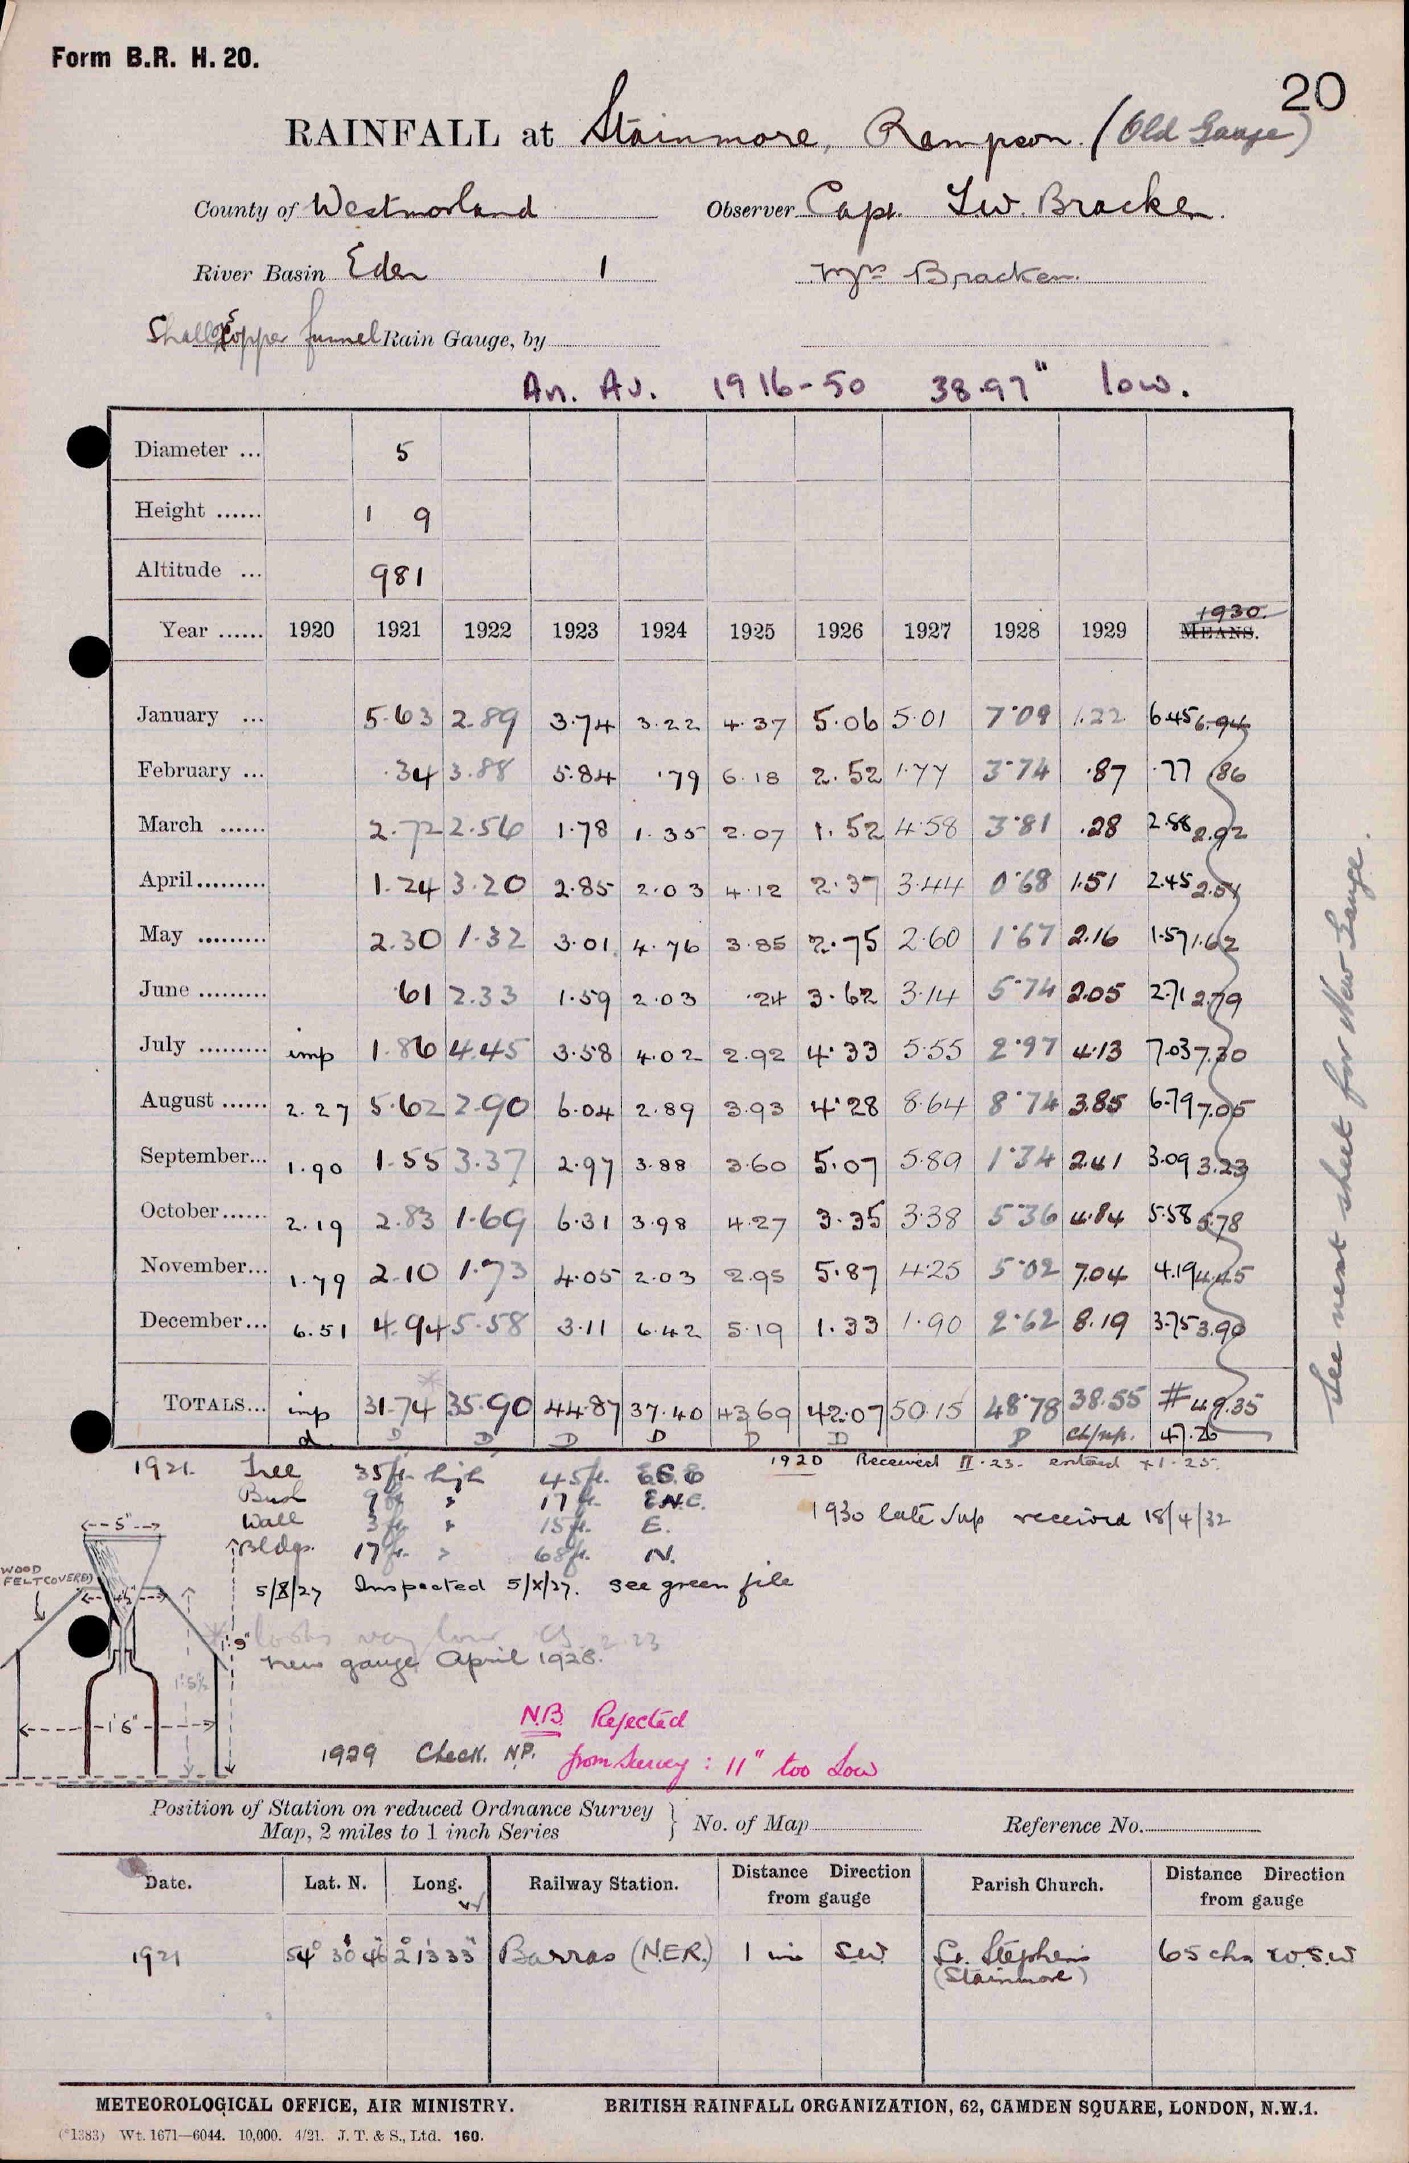 Form B.R. H. 20.
20
RAINFALL at Stainmore, Rampson. (Old Gauge)
County of Westmorland Observer Capt. T.W. Bracken.
River Basin Eden 1 Mrs Bracken.
Shallow Copper funnel Rain Gauge, by
An. Av. 1916-50 38.97" low.
Diameter ... 5
Height ...... 1 9
Altitude ... 981
1930.
Year ...... 1920 1921 1922 1923 1924 1925 1926 1927 1928 1929 MEANS.
January ... 5.63 2.89 3.74 3.22 4.37 5.06 5.01 7.09 1.22 6.45 6.94
February ... .34 3.88 5.84 .79 6.18 2.52 1.77 3.74 .87 .77 .86
March ...... 2.72 2.56 1.78 1.35 2.07 1.52 4.58 3.81 .28 2.88 2.92
April......... 1.24 3.20 2.85 2.03 4.12 2.37 3.44 0.68 1.51 2.45 2.51
May ......... 2.30 1.32 3.01 4.76 3.85 2.75 2.60 1.67 2.16 1.57 1.62
June ......... .61 2.33 1.59 2.03 .24 3.62 3.14 5.74 2.05 2.71 2.79
July ......... imp 1.86 4.45 3.58 4.02 2.92 4.33 5.55 2.97 4.13 7.03 7.30
August ...... 2.27 5.62 2.90 6.04 2.89 3.93 4.28 8.64 8.74 3.85 6.79 7.05
September... 1.90 1.55 3.37 2.97 3.88 3.60 5.07 5.89 1.34 2.41 3.09 3.23
October...... 2.19 2.83 1.69 6.31 3.98 4.27 3.35 3.38 5.36 4.84 5.58 5.78
November... 1.79 2.10 1.73 4.05 2.03 2.95 5.87 4.25 5.02 7.04 4.19 4.45
December... 6.51 4.94 5.58 3.11 6.42 5.19 1.33 1.90 2.62 8.19 3.75 3.90
*
TOTALS... imp 31.74 35.90 44.87 37.40 43.69 42.07 50.15 48.78 38.55 # 49.35
d. D D D D D D D Ch/np. 47.26
See next sheet for New Gauge.
1921. Tree 35ft. high 45ft. ESE
Bush 9ft " 17ft. ENE.
Wall 3ft " 15ft. E.
Bldgs. 17ft. " 68ft. N.
1920 Received II.23. entered XI.25.
1930 late sup received 18/4/32
5/X/27 Inspected 5/X/27. See green file
* looks very low 2.23
new gauge April 1928.
5"
WOOD
FELT COVERED
4½"
1'9"
1'5½
1'6"
N.B. Rejected
from Survey : 11" too Low
1929 Check. NP.
Position of Station on reduced Ordnance Survey
Map, 2 miles to 1 inch Series } No. of Map Reference No.
Date. Lat. N. Long. W Railway Station. Distance Direction from gauge Parish Church. Distance Direction from gauge
1921 54° 30' 46" 2° 13' 33" Barras (N.E.R.) 1 mi SW St. Stephens (Stainmore) 65 chs W.S.W
METEOROLOGICAL OFFICE, AIR MINISTRY. BRITISH RAINFALL ORGANIZATION, 62, CAMDEN SQUARE, LONDON, N.W.1.
(*1383) Wt. 1671—6044. 10,000. 4/21. J. T. & S., Ltd. 160.